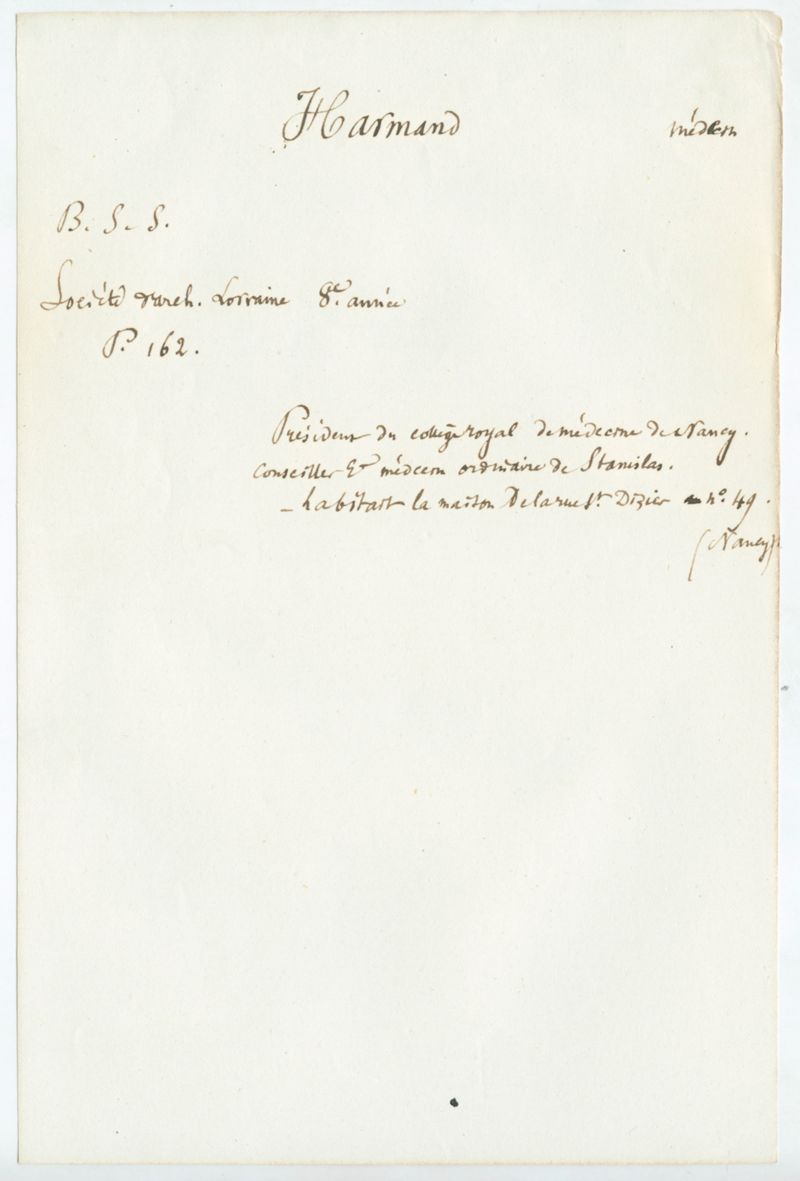 Harmand médecin
B. S. S.
Société d'arch. Lorraine 8e. année
P. 162.
Président du collège royal de médecine de Nancy.
Conseiller & médecin ordinaire de Stanislas.
- habitait la maison de la rue St. Dizier n°. 49.
(Nancy)